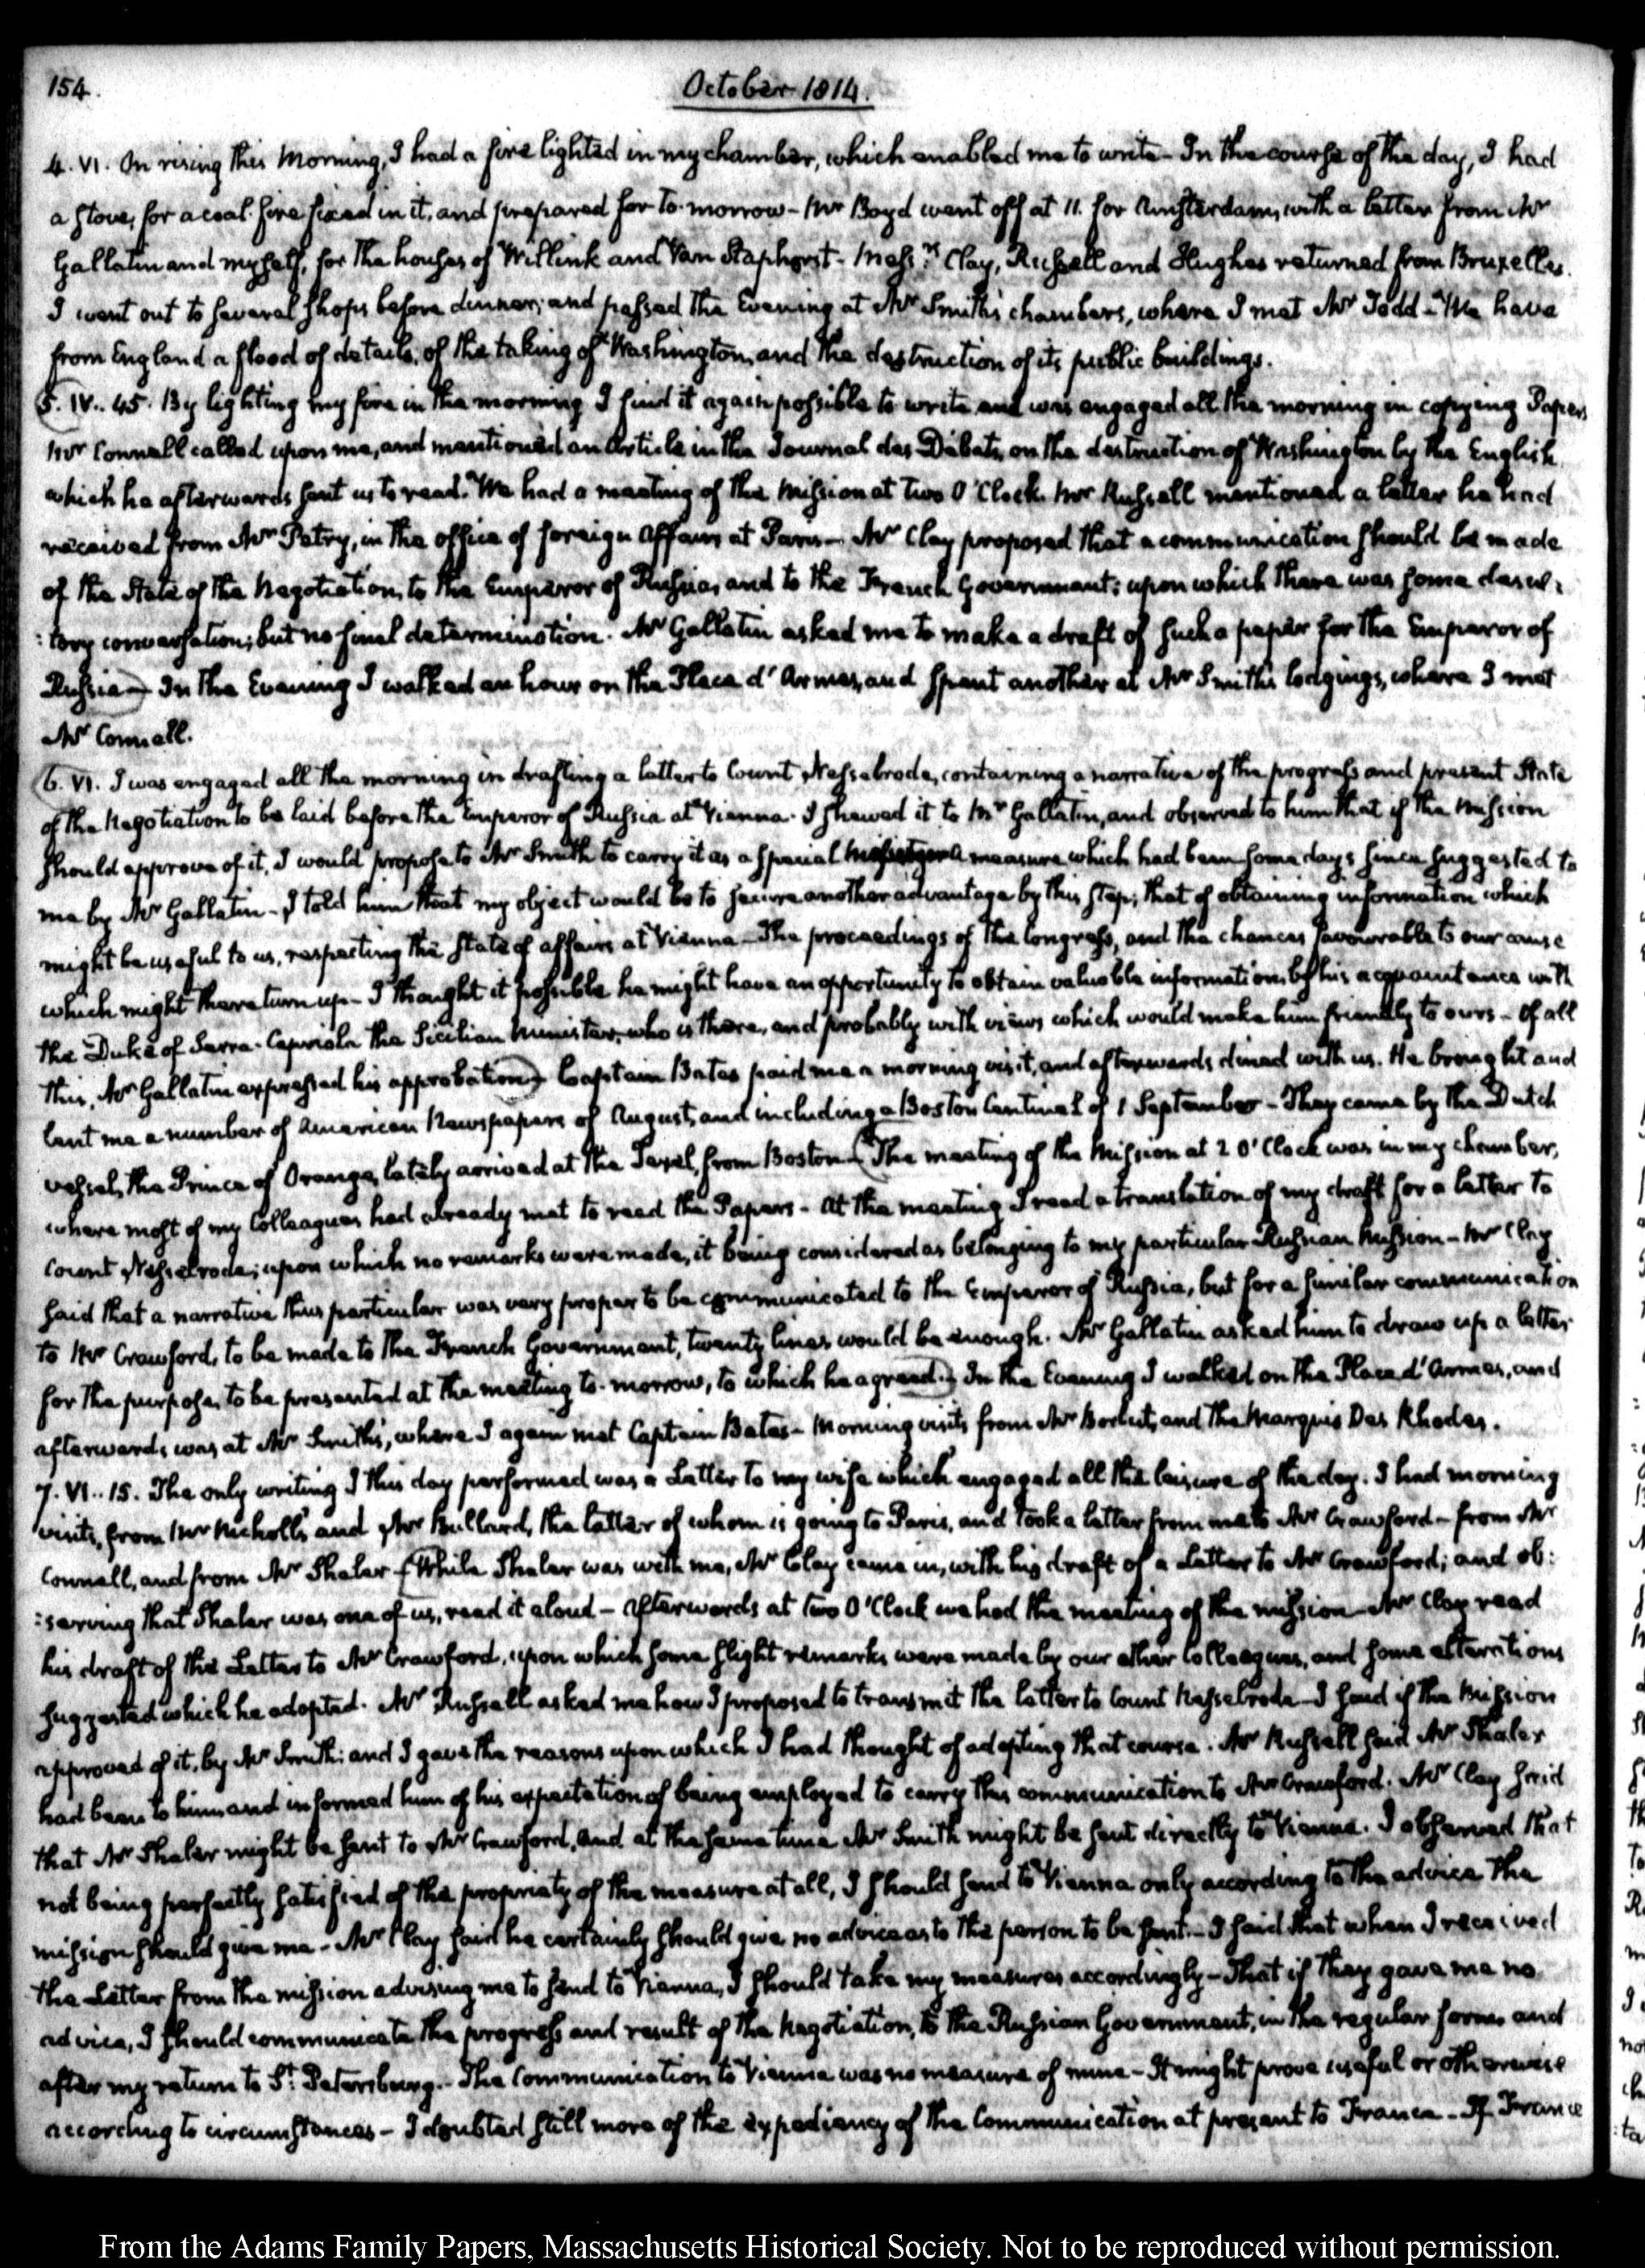 154.
October 1814.
4. VI. On rising this Morning, I had a fire lighted in my chamber, which enabled me to write - In the course of the day, I had
a stove, for a coal fire fixed in it, and prepared for to-morrow - Mr Boyd went off at 11. for Amsterdam, with a letter from Mr
Gallatin and myself, for the houses of Willink and Van Staphorst - Messrs Clay, Russell and Hughes returned from Bruxelles.
I went out to several shops before dinner; and passed the Evening at Mr Smith's chambers, where I met Mr Todd - We have
from England a flood of details, of the taking of Washington, and the destruction of its public buildings.
5. IV.. 45. By lighting my fire in the morning I find it again possible to write and was engaged all the morning in copying Papers
Mr Connell called upon me, and mentioned an Article in the Journal des Débats, on the destruction of Washington by the English
which he afterwards sent us to read. We had a meeting of the Mission at two O'Clock. Mr Russell mentioned a letter he had
received from Mr Petry, in the office of foreign Affairs at Paris - Mr Clay proposed that a communication should be made
of the State of the Negotiation, to the Emperor of Russia, and to the French Government: upon which there was some desul:
:tory conversation; but no final determination. Mr Gallatin asked me to make a draft of such a paper for the Emperor of
Russia - In the Evening I walked an hour on the Place d'Armes, and spent another at Mr Smith's lodgings, where I met
Mr Connell.
6. VI. I was engaged all the morning in drafting a letter to Count Nesselrode, containing a narrative of the progress and present State
of the Negotiation to be laid before the Emperor of Russia at Vienna. I shewed it to Mr Gallatin, and observed to him that if the Mission
should approve of it, I would propose to Mr Smith to carry it as a special Messenger a measure which had been some days since suggested to
me by Mr Gallatin - I told him that my object would be to secure another advantage by this step; that of obtaining information which
might be useful to us, respecting the State of affairs at Vienna - The proceedings of the Congress, and the chances favourable to our cause
which might there turn up - I thought it possible he might have an opportunity to obtain valuable information, by his acquaintance with
the Duke of Serra-Capriola the Sicilian Minister, who is there, and probably with views which would make him friendly to ours - Of all
this, Mr Gallatin expressed his approbation - Captain Bates paid me a morning visit, and afterwards dined with us. He brought and
lent me a number of American Newspapers of August, and including a Boston Centinel of 1 September - They came by the Dutch
vessel, the Prince of Orange, lately arrived at the Texel, from Boston - The meeting of the Mission at 2 O'Clock was in my chamber,
where most of my Colleagues had already met to read the Papers - At the meeting I read a translation of my draft for a letter to
Count Nesselrode; upon which no remarks were made, it being considered as belonging to my particular Russian Mission - Mr Clay
said that a narrative thus particular was very proper to be communicated to the Emperor of Russia, but for a similar communication
to Mr Crawford, to be made to the French Government, twenty lines would be enough. Mr Gallatin asked him to draw up a letter
for the purpose, to be presented at the meeting to-morrow, to which he agreed. In the Evening I walked on the Place d'Armes, and
afterwards was at Mr Smith's, where I again met Captain Bates - Morning visits from Mr Borlut, and the Marquis Des Rhodes.
7. VI.. 15. The only writing I this day performed was a Letter to my wife which engaged all the leisure of the day. I had morning
visits, from Mr Nicholls and Mr Bullard, the latter of whom is going to Paris, and took a letter from me to Mr Crawford - from Mr
Connell, and from Mr Shaler - While Shaler was with me, Mr Clay came in, with his draft of a Letter to Mr Crawford; and ob:
:serving that Shaler was one of us, read it aloud - Afterwards at two O'Clock we had the meeting of the mission - Mr Clay read
his draft of the Letter to Mr Crawford, upon which some slight remarks were made by our other Colleagues, and some alterations
suggested which he adopted. Mr Russell asked me how I proposed to transmit the letter to Count Nesselrode - I said if the Mission
approved of it, by Mr Smith: and I gave the reasons upon which I had thought of adopting that course. Mr Russell said Mr Shaler
had been to him and informed him of his expectation of being employed to carry this communication to Mr Crawford. Mr Clay said
that Mr Shaler might be sent to Mr Crawford, and at the same time Mr Smith might be sent directly to Vienna. I observed that
not being perfectly satisfied of the propriety of the measure at all, I should send to Vienna only according to the advice the
mission should give me - Mr Clay said he certainly should give no advice as to the person to be sent. - I said that when I received
the Letter from the mission advising me to send to Vienna, I should take my measures accordingly - That if they gave me no
advice, I should communicate the progress and result of the Negotiation, to the Russian Government, in the regular forms and
after my return to St. Petersburg. - The Communication to Vienna was no measure of mine - It might prove useful or otherwise
according to circumstances - I doubted still more of the expediency of the Communication at present to France - If France
From the Adams Family Papers, Massachusetts Historical Society. Not to be reproduced without permission.